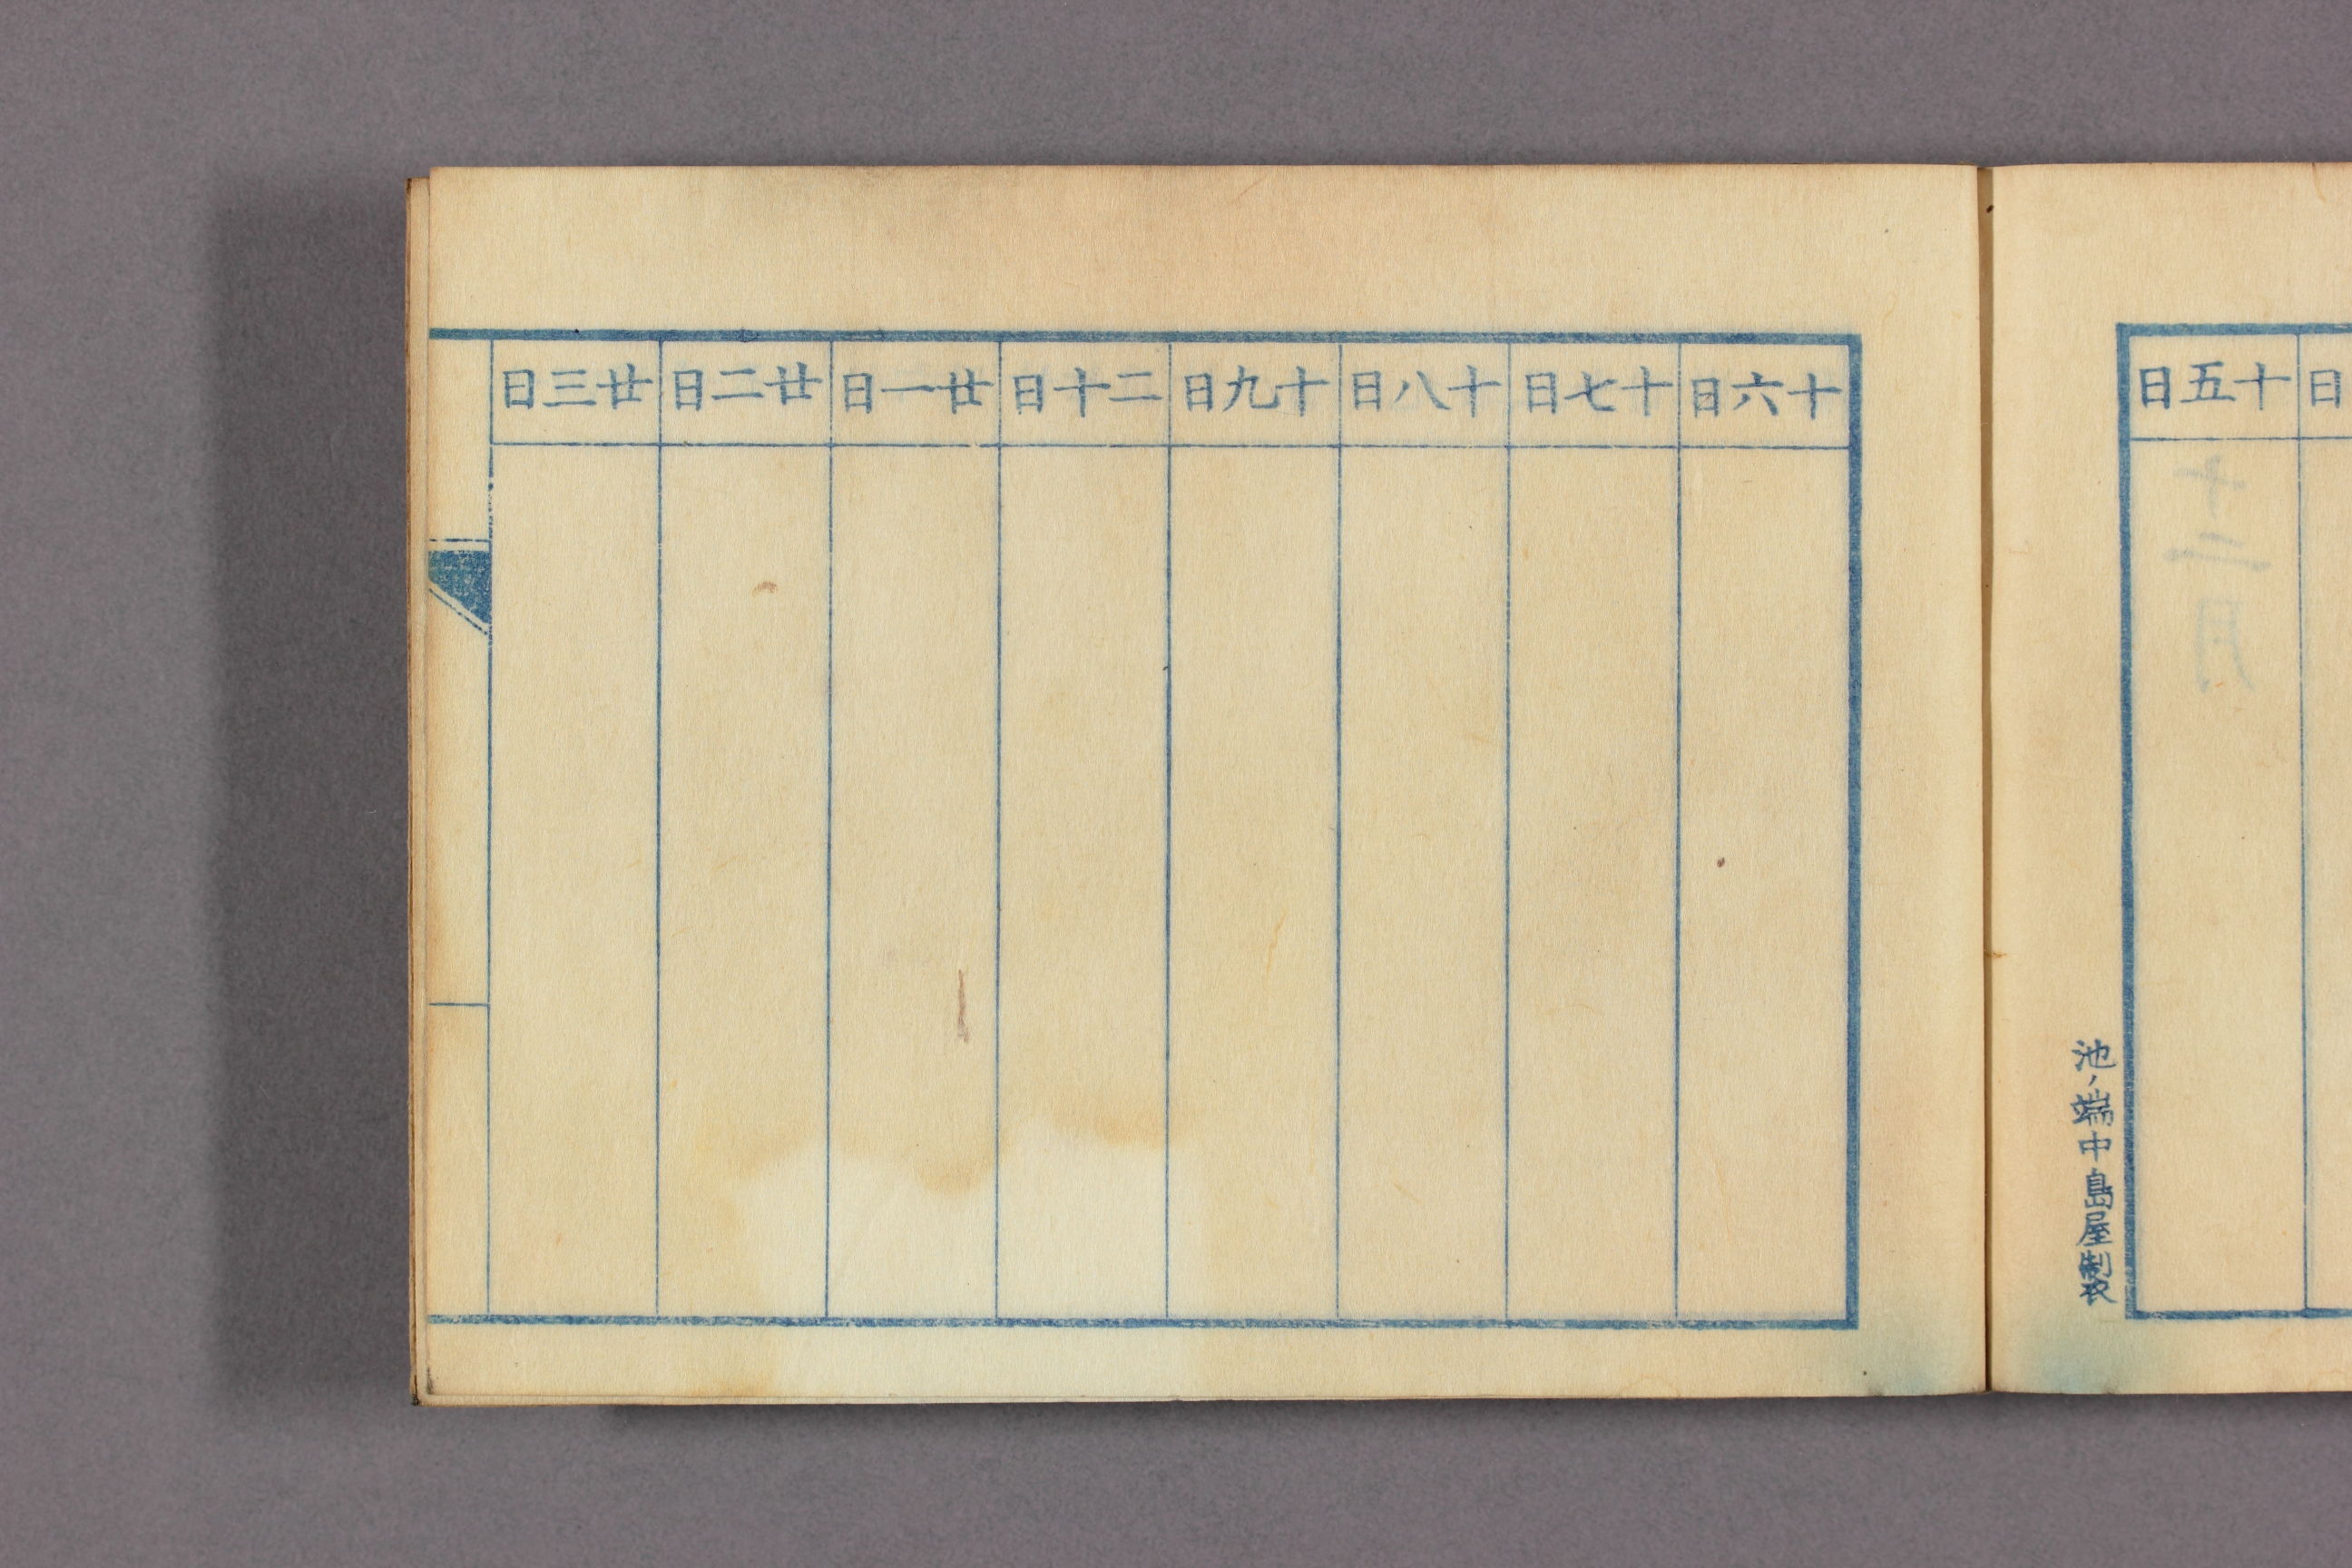 日
十五日
池ノ端中島屋製
十六日
十七日
十八日
十九日
二十日
廿一日
廿二日
廿三日